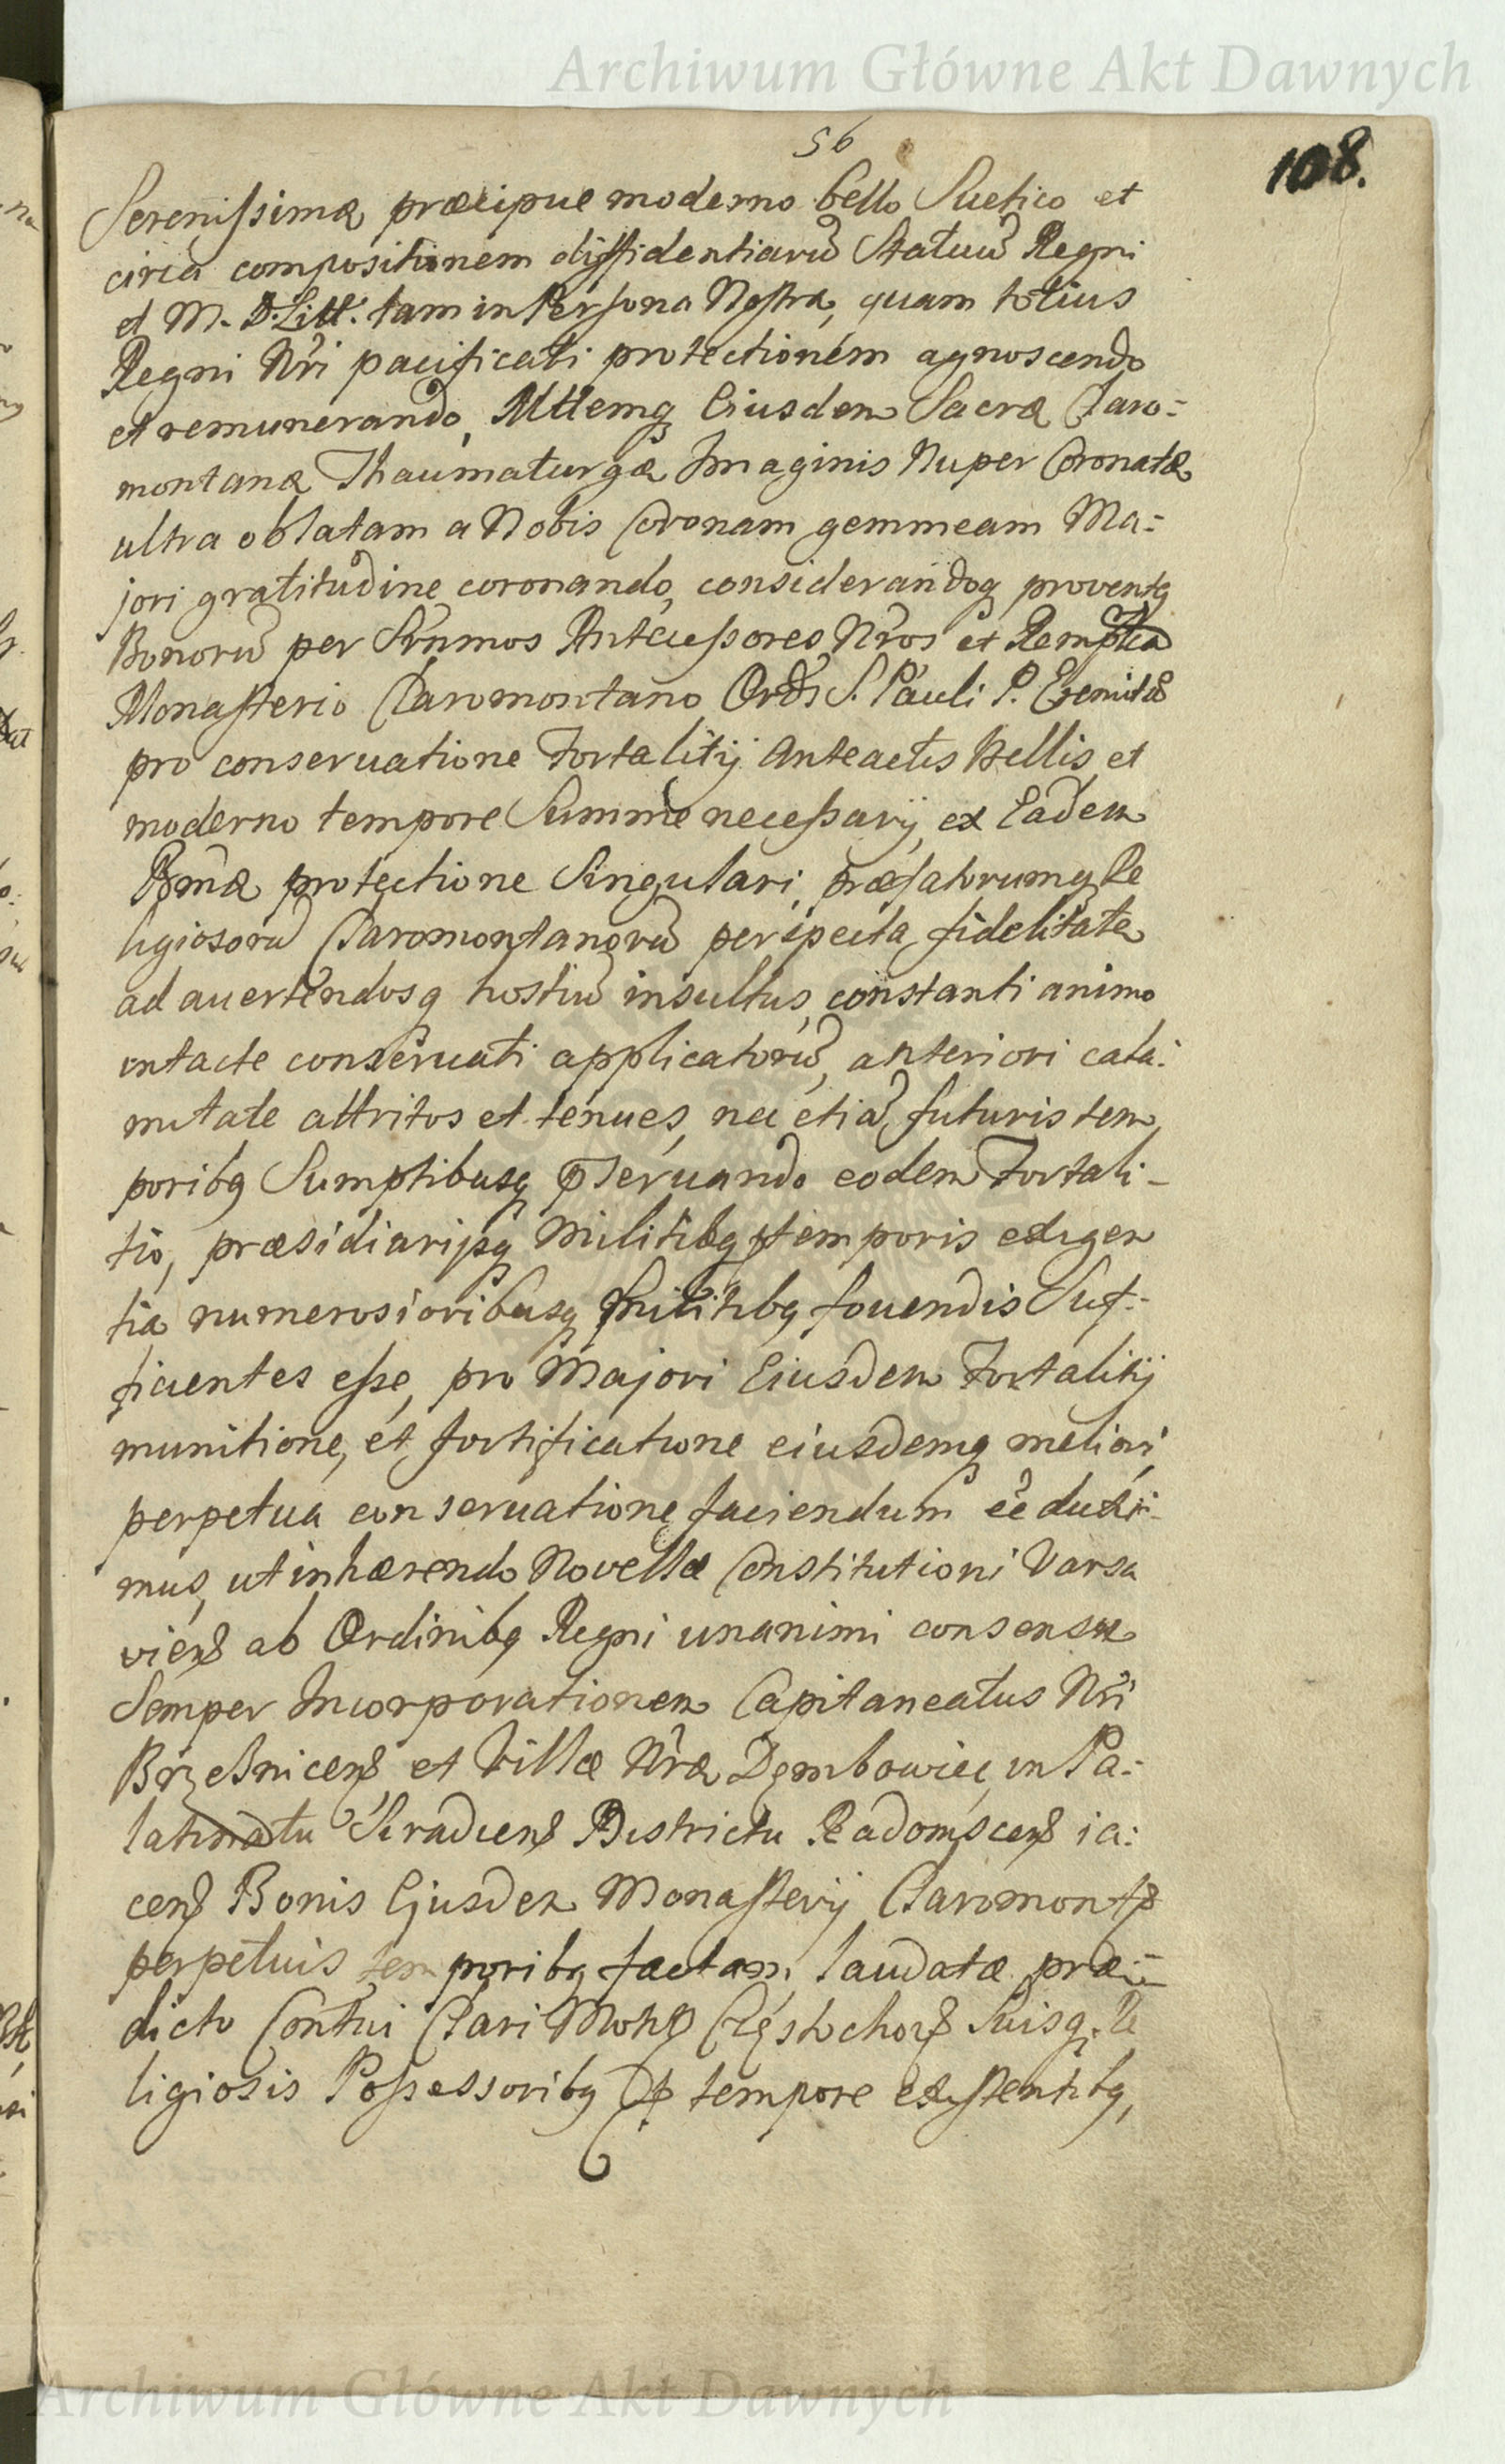 Archiwum Główne Akt Dawnych
56
108.
Serenissimæ præcipue moderno bello Suetico et
circa compositionem diffidentiarũ Statuũ Regni
et M. D. Litt. tam in Persona Nostra, quam totius
Regni Nri pacificati protectionem agnoscendo
et remunerando, Mttemq Eiusdem Sacræ Claro=
montanæ Thaumaturgæ Imaginis Nuper Coronatæ
ultra oblatam a Nobis Coronam gemmeam Ma=
jori gratitudine coronando, considerandoq proventq
Bonorũ per Srnmos Antecessores Nros et Remplica
Monasterio Claromontano Ords S. Pauli P. Eremitæ
pro conseruatione Fortalitij Anteactis Bellis, et
moderno tempore Summe necessarij, ex Eadem
protectione Singulari, præfatorumq Re
ligiosorũ Claromontanorũ perspecta fidelitate
ad auertendosq hostiũ insultus, constanti animo
intacte conseruati applicatorũ, anteriori cala=
mitate attritos et tenues, nec etiã futuris tem
poribq Sumptibusq pseruando eodem Fortali-
tio, præsidiarijsq Militibq temporis exigen
tia numerosioribusq militibq fouendis Suf=
ficientes esse, pro Majori Eiusdem Fortalitij
munitione, et fortificatione eiusdemq meliori,
perpetua conseruatione faciendum ee duxi=
mus, ut inhærendo Novellæ Constitutioni Varsa
viens ab Ordinibq Regni unanimi consensu
Semper Incorporationem Capitaneatus Nri
Brzesnicens et Villæ Nræ Dembowiec, in Pa=
latinatu Siradiens Districtu Radomscens ia=
cens Bonis Ejusdem Monasterij Claromonts
perpetuis temporibq factam, laudatæ præ=
dicto Contui Clari Monts Częstochoũ Suisq Re
ligiosis Possessoribq p tempore existentibq,
Archiwum Główne Akt Dawnych